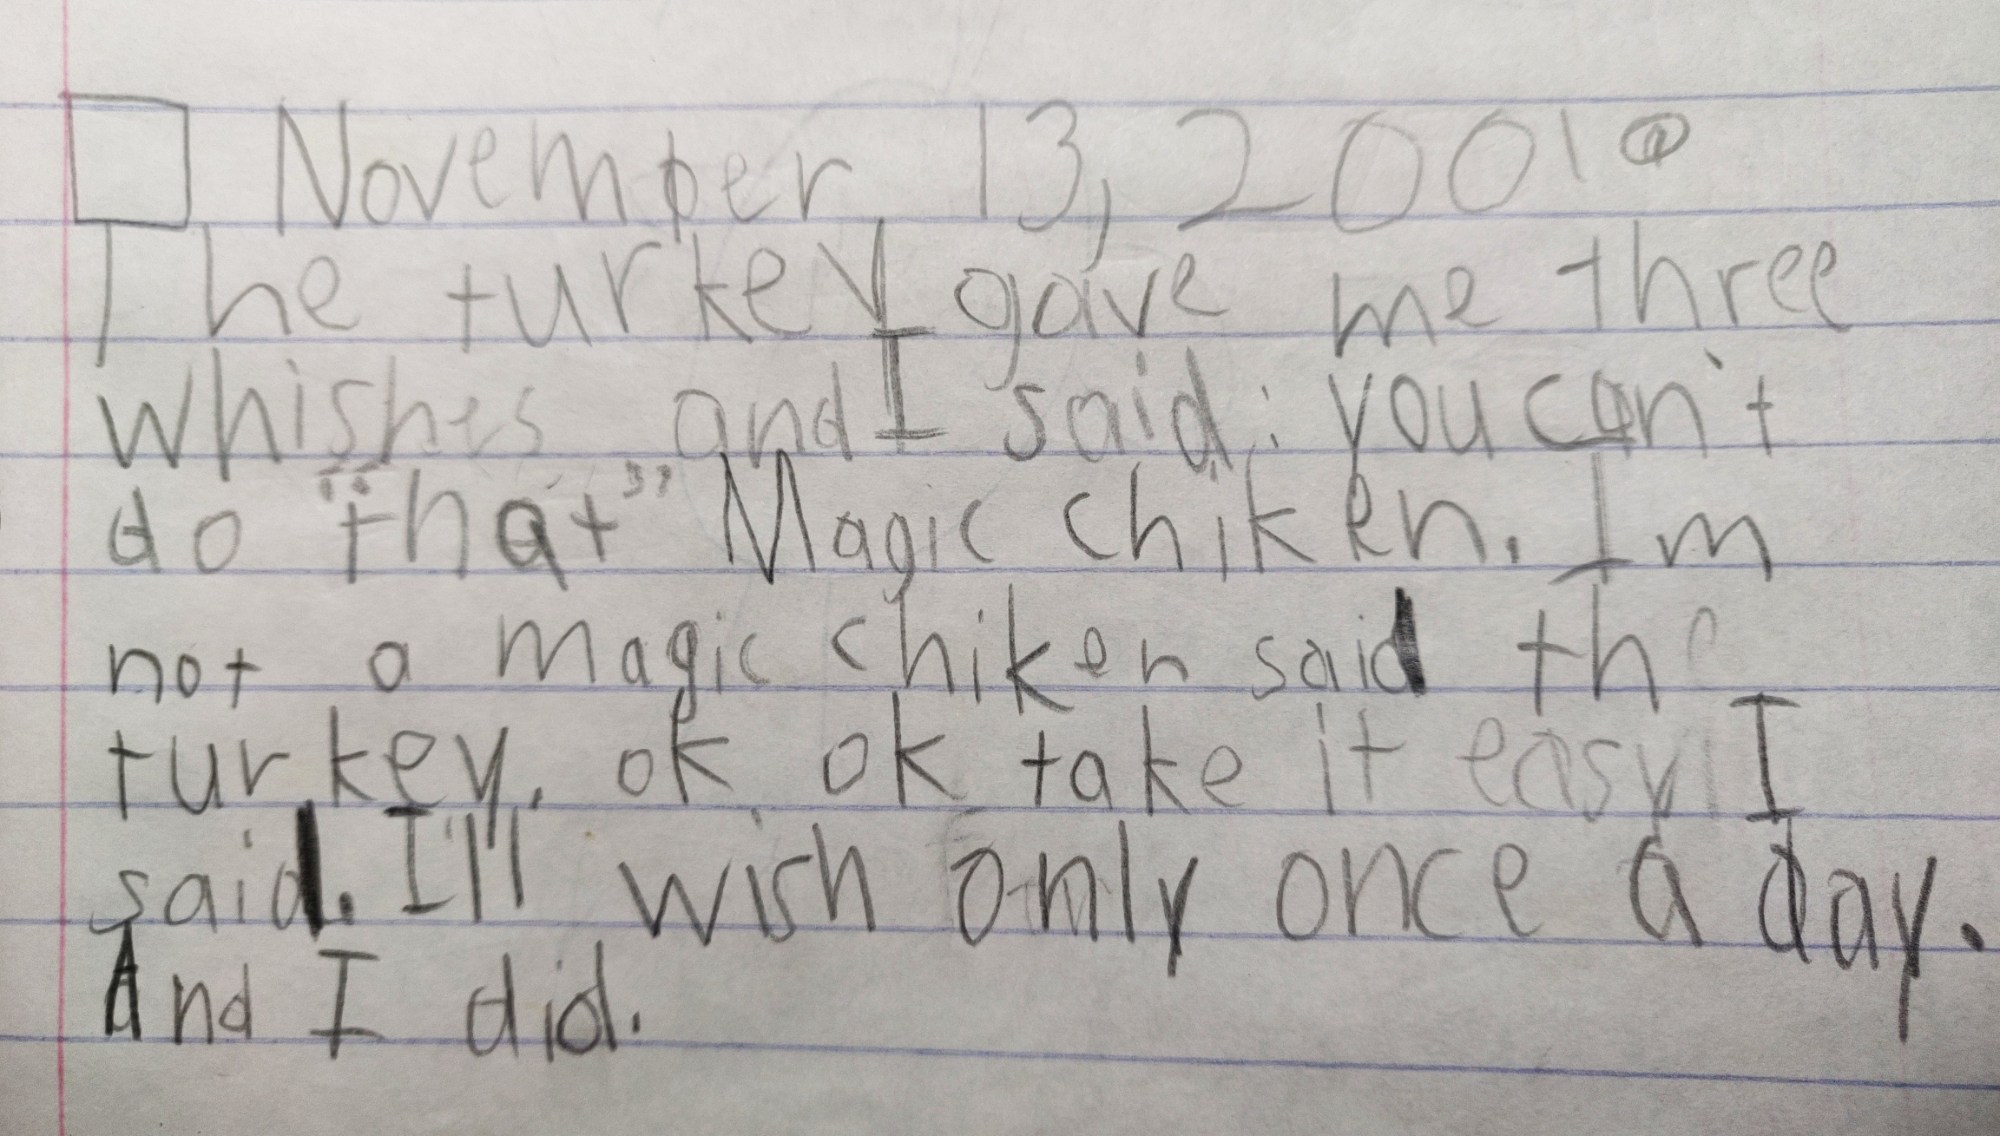 November 13, 2001 @
The turkey gave me three
whishes and I said: you can't
do "that" Magic chiken. Im
not a magic chiken said the
turkey. ok ok take it easy I
said. I'll wish only once a day.
And I did.